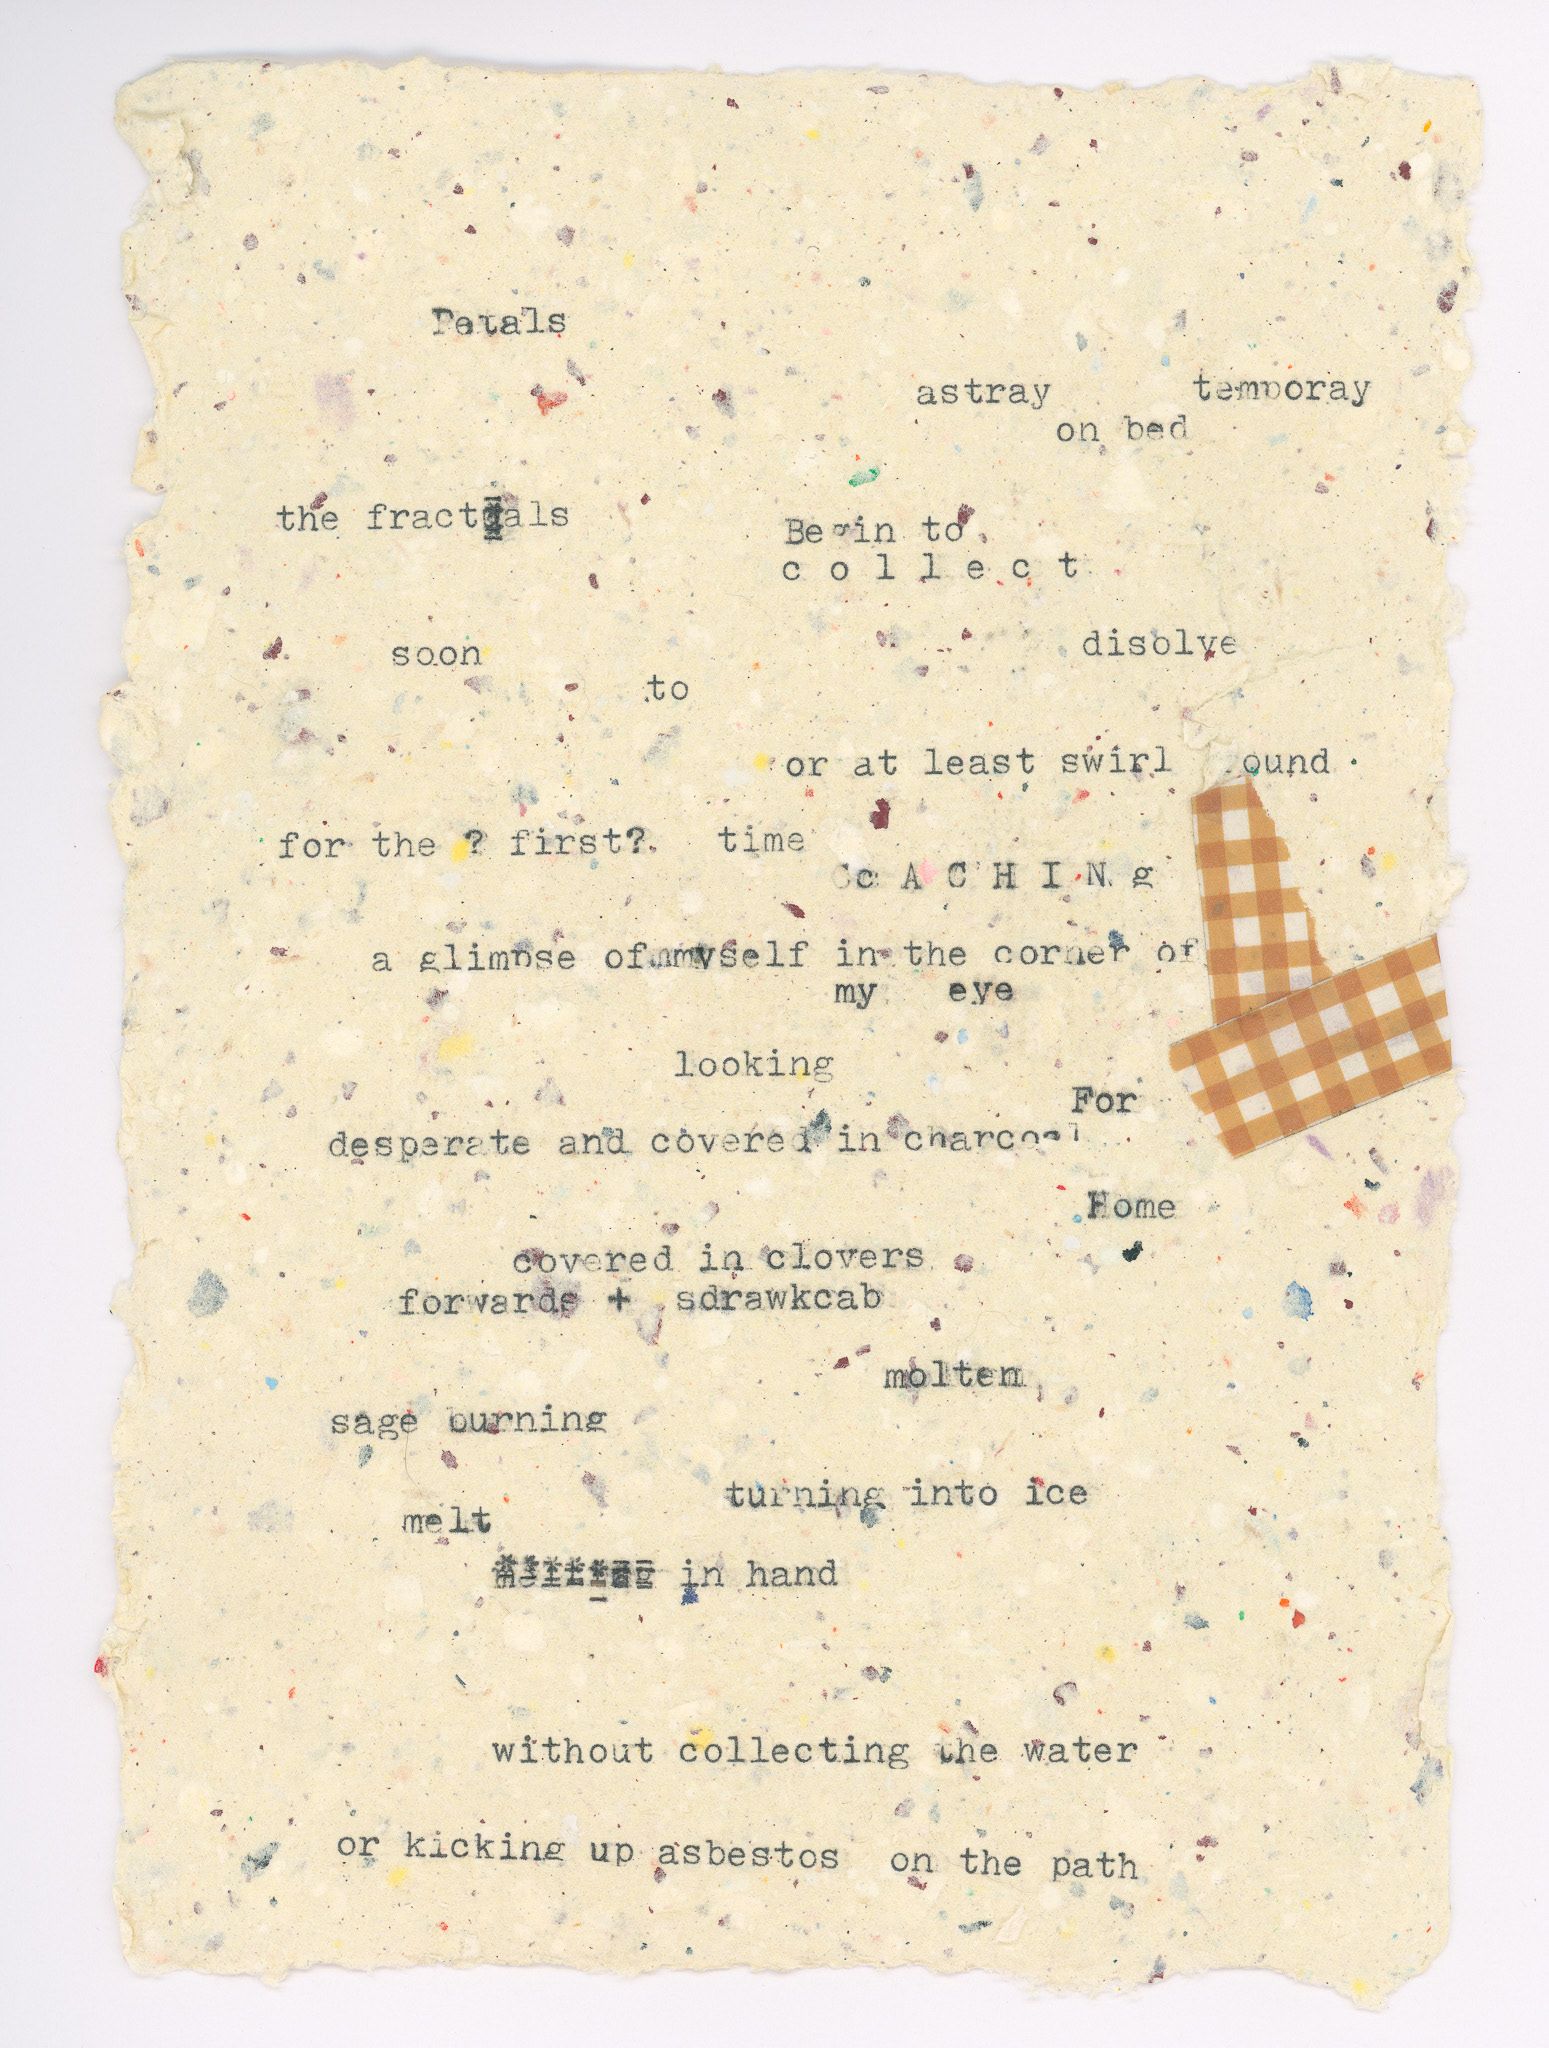 Petals
astray temporay
on bed
the fractals
Begin to
c o l l e c t
soon disolve
to
or at least swirl ound
for the ? first? time
Cc A C H I N g
a glimpse of myself in the corner of
my eye
looking
For
desperate and covered in charcoal
Home
covered in clovers
forwards + sdrawkcab
molten
sage burning
turning into ice
melt
in hand
without collecting the water
or kicking up asbestos on the path